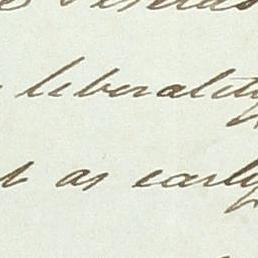 liberality
as early